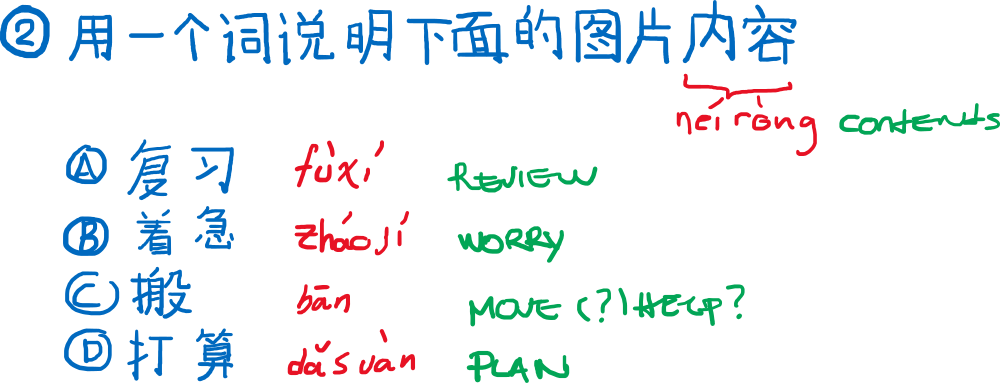 ② 用一个词说明下面的图片内容
néi ròng contents
Ⓐ 复习 fùxí REVIEW
Ⓑ 着急 zháojí WORRY
Ⓒ 搬 bān MOVE (?) HELP?
Ⓓ 打算 dǎsuàn PLAN